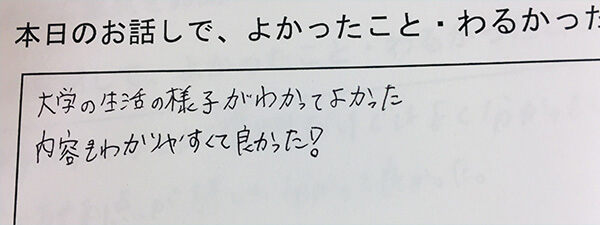 本日のお話しで、よかったこと・わるかった
大学の生活の様子がわかってよかった
内容もわかりやすくて良かった!